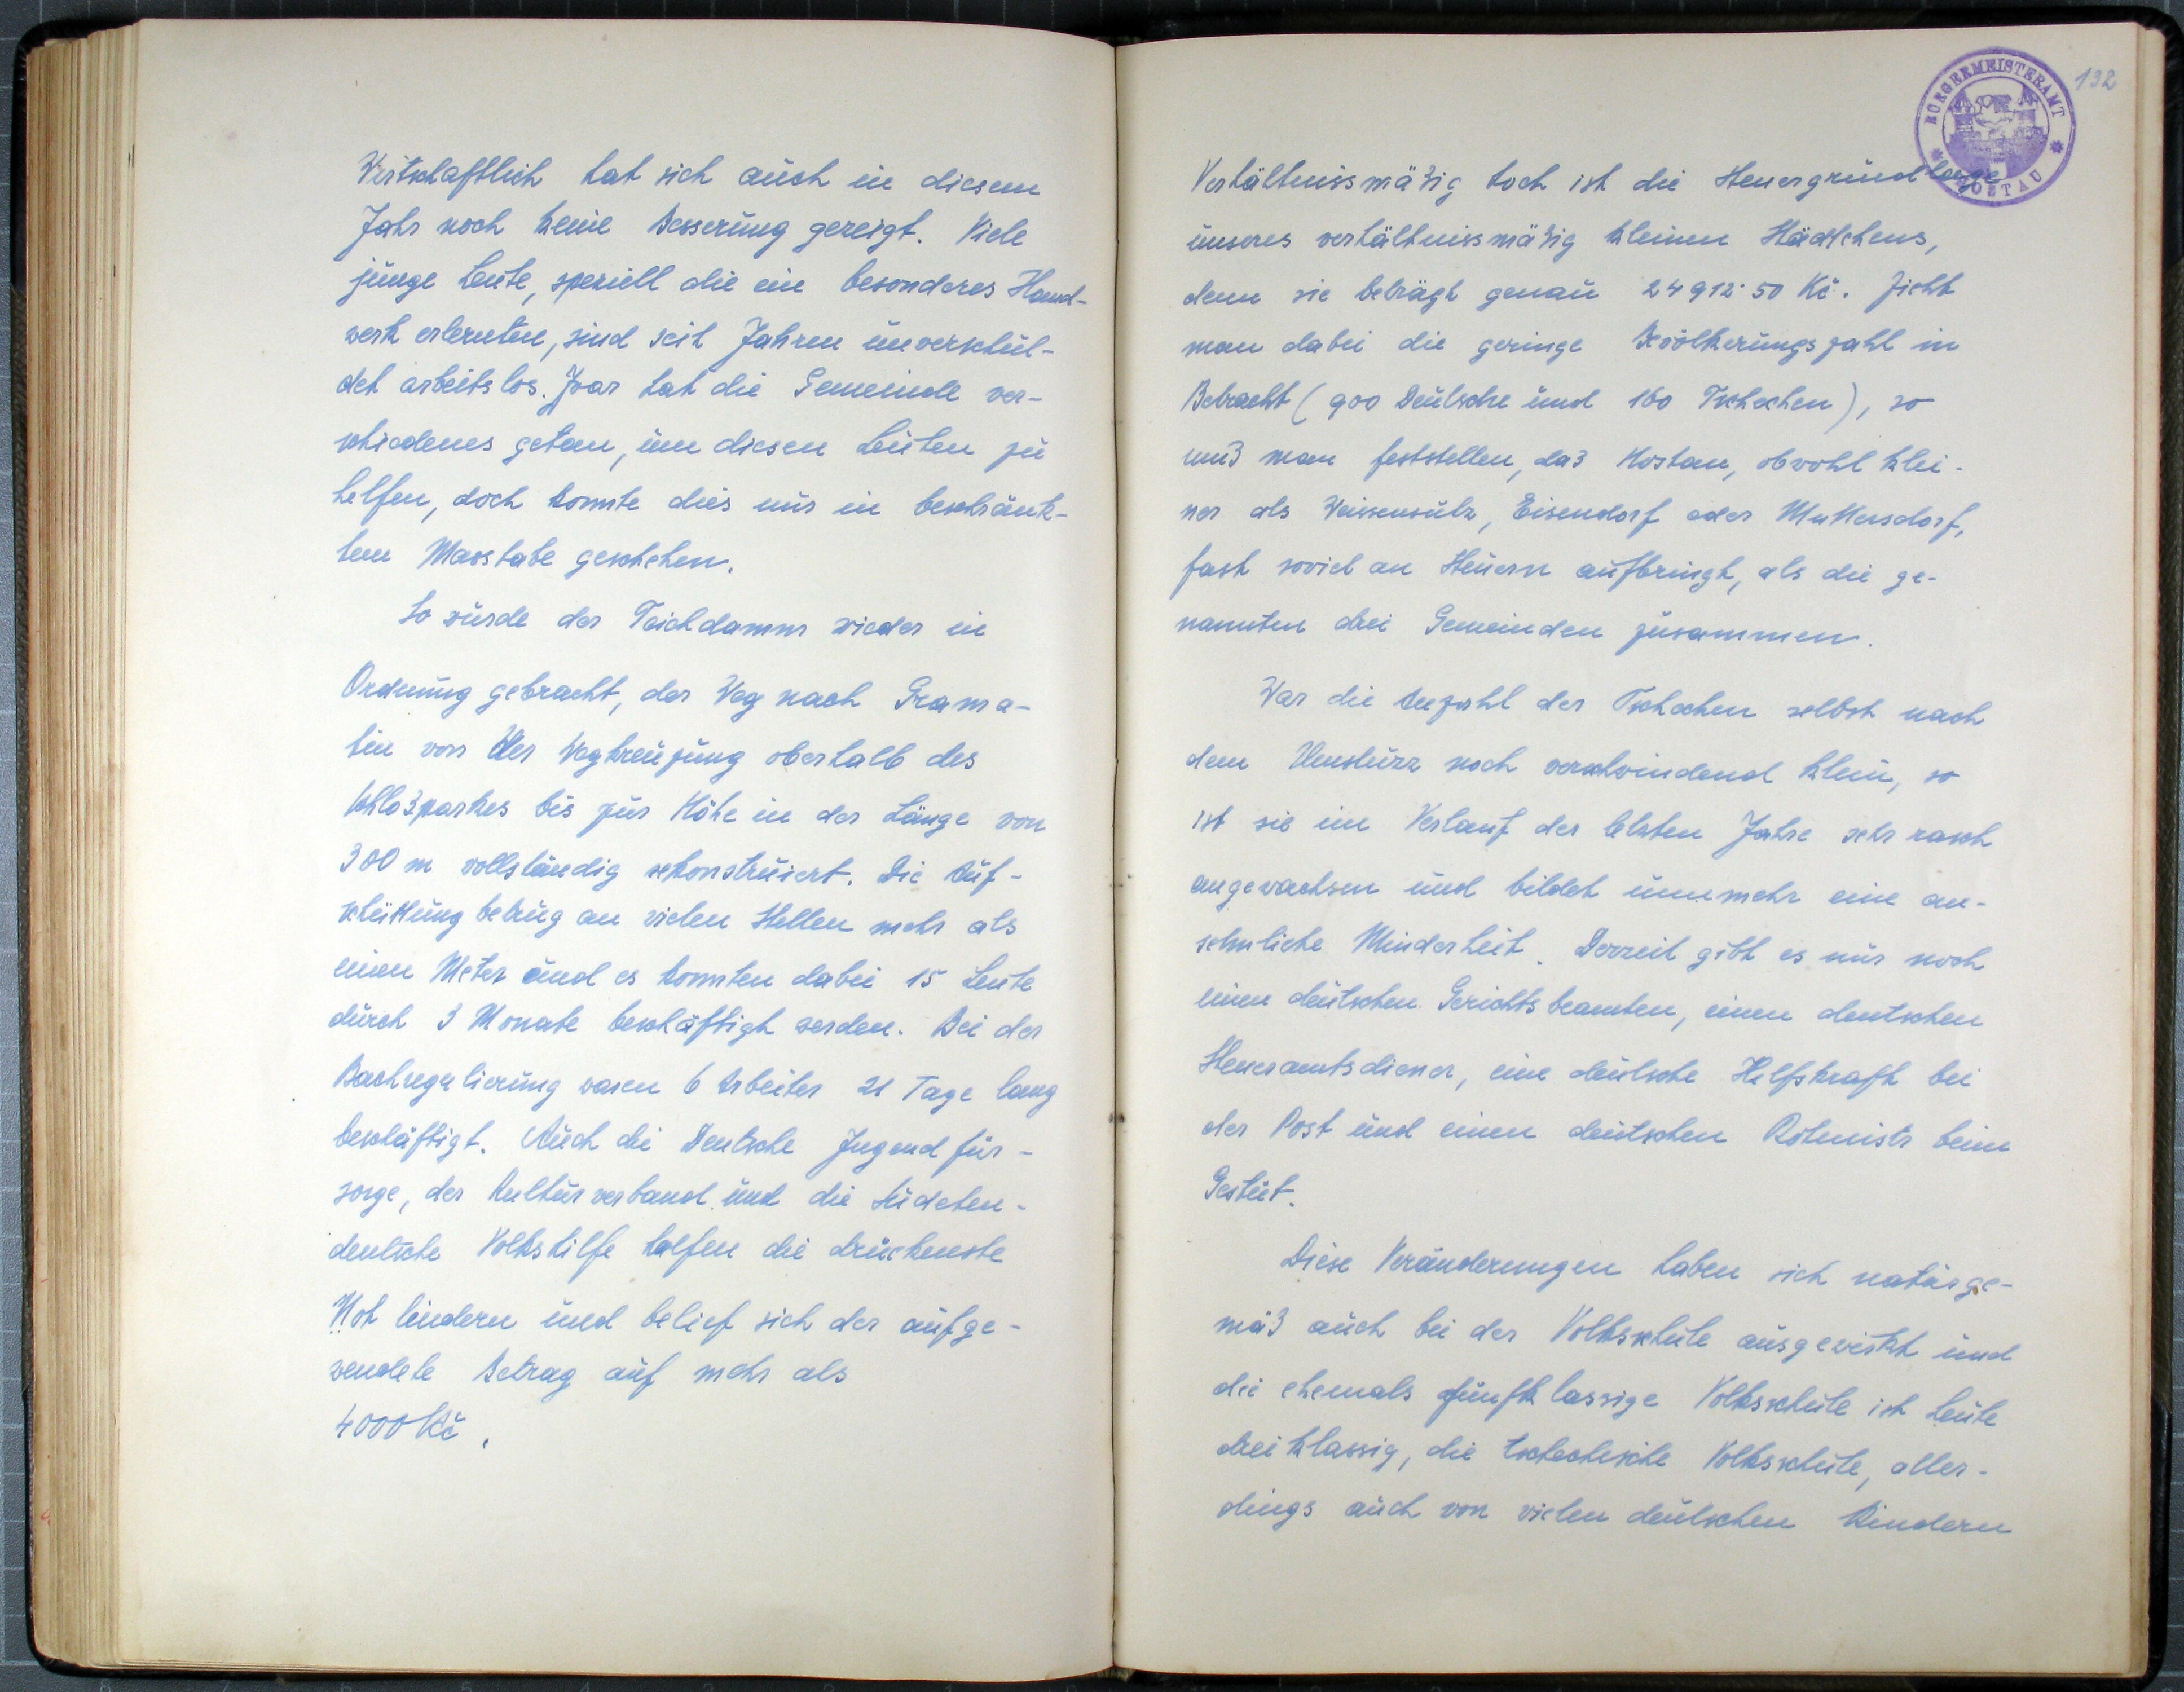 Wirtschaftlich hat sich auch in diesem
Jahr noch keine Besserung gezeigt. Viele
junge Leute, speziell die ein besonderes Hand-
werk erlernten, sind seit Jahren unverschul-
det arbeitslos. Zwar hat die Gemeinde ver-
schiedenes getan, um diesen Leuten zu
helfen, doch konnte dies nur in beschränk-
tem Masstabe geschehen.
So wurde der Teichdamm wieder in
Ordnung gebracht, der Weg nach Grama-
tin von der Wegkreuzung oberhalb des
Schloßparkes bis zur Höhe in der Länge von
300 m vollständig rekonstruiert. Die Auf-
schüttung betrug an vielen Stellen mehr als
einen Meter und es konnten dabei 15 Leute
durch 3 Monate beschäftigt werden. Bei der
Bachregulierung waren 6 Arbeiter 21 Tage lang
beschäftigt. Auch die Deutsche Jugendfür-
sorge, der Kulturverband und die Sudeten-
deutsche Volkshilfe halfen die drückenste
Not lindern und belief sich der aufge-
wendete Betrag auf mehr als
4000 Kč.
132
BÜRGERMEISTERAMT
HOSTAU
Verhältnissmäßig hoch ist die Steuergrundlage
unseres verhältnissmäßig kleinen Städtchens,
denn sie beträgt genau 24912·50 Kč. Zieht
man dabei die geringe Bevölkerungszahl in
Betracht (900 Deutsche und 160 Tschechen), so
muß man feststellen, daß Hostau, obwohl klei-
ner als Weissensulz, Eisendorf oder Muttersdorf,
fast soviel an Steuern aufbringt, als die ge-
nannten drei Gemeinden zusammen.
War die Anzahl der Tschechen selbst nach
dem Umsturz noch verschwindend klein, so
ist sie im Verlauf der letzten Jahre sehr rasch
angewachsen und bildet nunmehr eine an-
sehnliche Minderheit. Derzeit gibt es nur noch
einen deutschen Gerichtsbeamten, einen deutschen
Steueramtsdiener, eine deutsche Hilfskraft bei
der Post und einen deutschen Rotmistr beim
Gestüt.
Diese Veränderungen haben sich naturge-
mäß auch bei der Volksschule ausgewirkt und
die ehemals fünfklassige Volksschule ist heute
dreiklassig, die tschechische Volksschule, aller-
dings auch von vielen deutschen Kindern